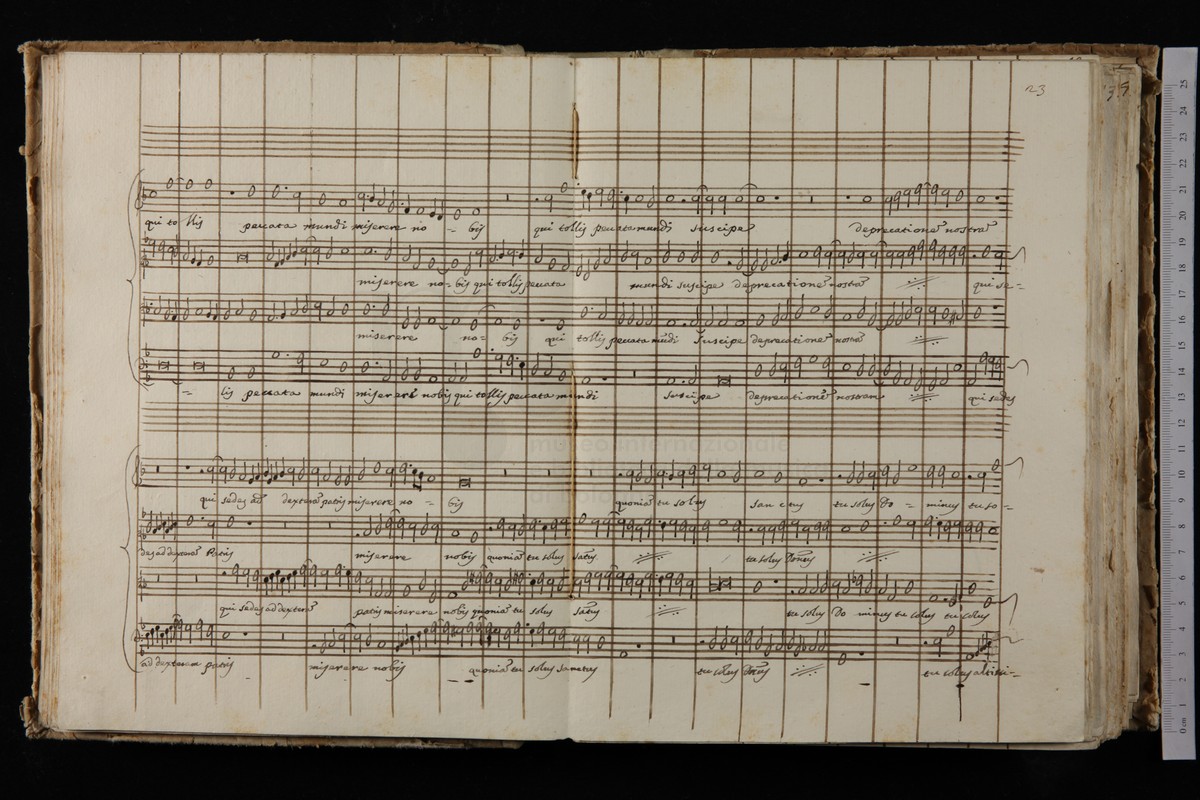 23
39
qui tollis peccata mundi miserere no - bis qui tollis peccata mundi suscipe deprecatione nostra
miserere no - bis qui tollis peccata mundi suscipe deprecatione nostra qui se -
miserere no - bis qui tollis peccata mudi suscipe deprecatione nostra
- lis peccata mundi miserere nobis qui tollis peccata mundi suscipe deprecatione nostram qui sedes
museo internazionale
qui sedes ad dextera patris miserere no - bis quonia tu solus sanctus tu solus Do - minus tu so -
des ad dextera Patris miserere nobis quonia tu solus satus tu solus Dones
qui sedes ad dextera patris miserere nobis quonia tu solus satus tu solus Do minus tu solus tu solus
ad dexteram patris miserere nobis quonia tu solus sanctus tu solus Dones tu solus altissi -